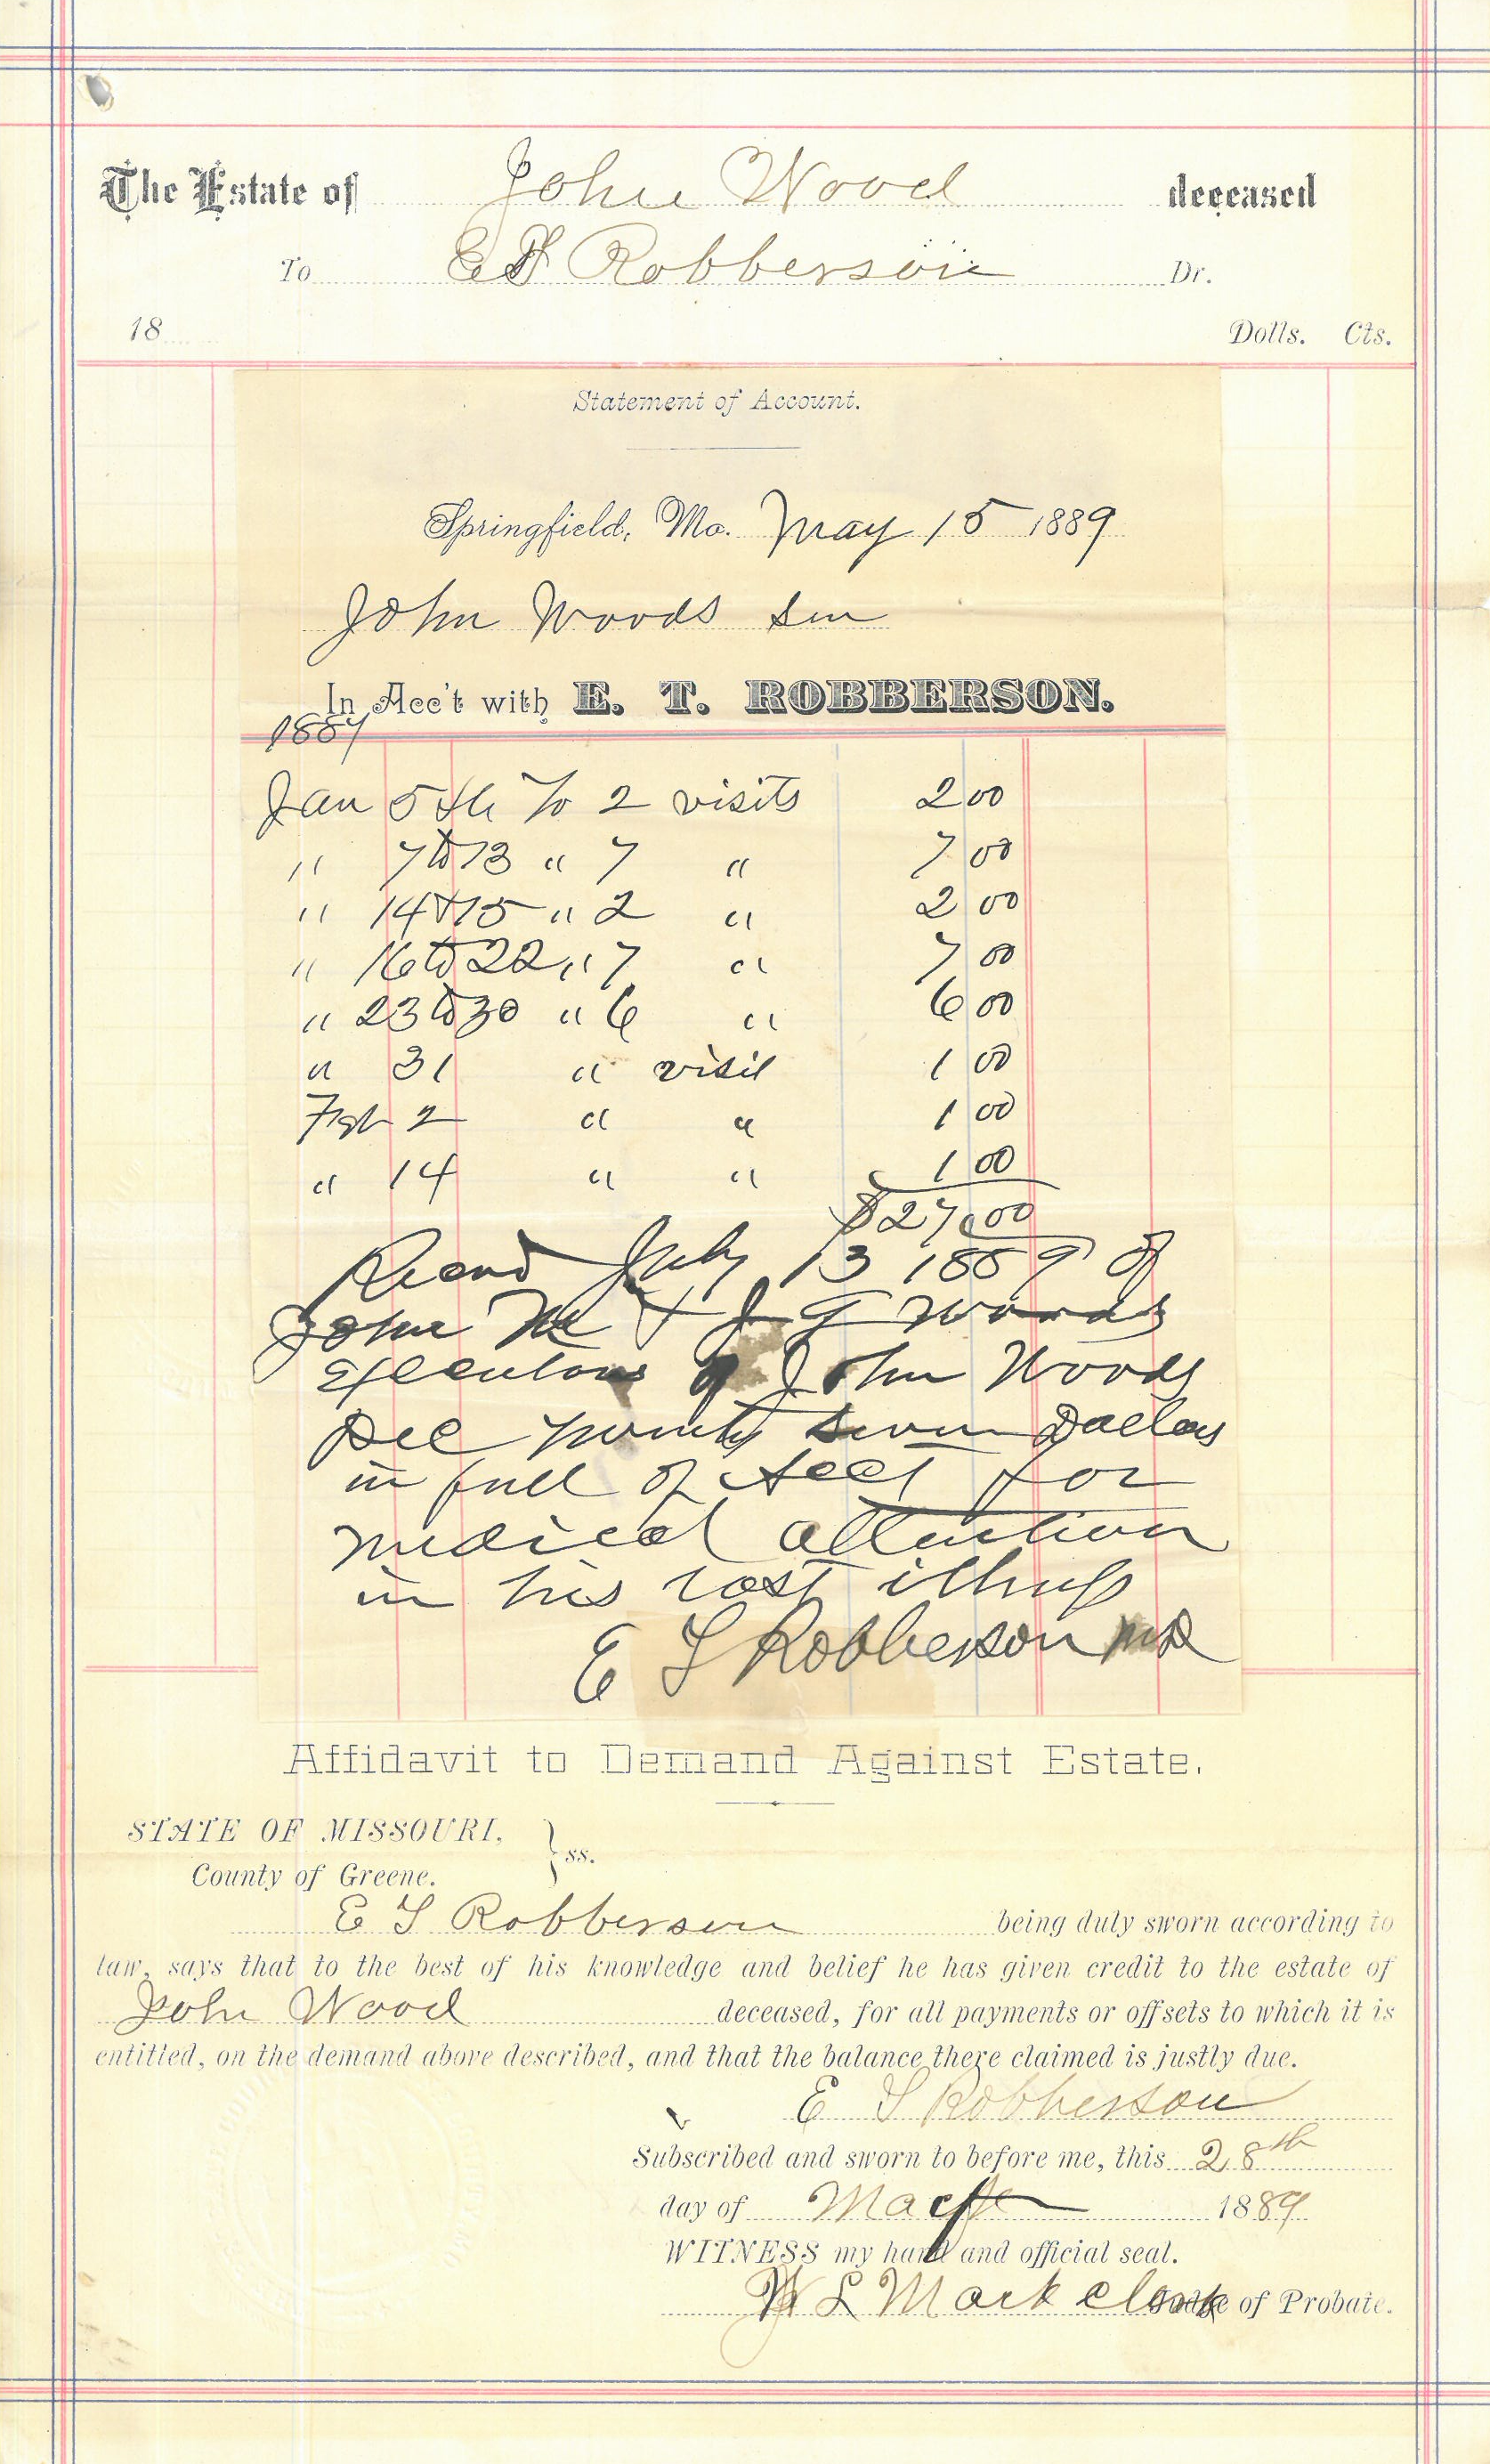 The Estate of John Wood deceased
To E T Robberson Dr.
18 Dolls. Cts.
Statement of Account.
Springfield, Mo. May 15 1889
John Woods Sen
In Acc't with E. T. ROBBERSON.
1887
Jan 5th To 2 visits 2 00
" 7 to 13 " 7 " 7 00
" 14 & 15 " 2 " 2 00
" 16 to 22 " 7 " 7 00
" 23 to 30 " 6 " 6 00
" 31 " visit 1 00
Feb 2 " " 1 00
" 14 " " 1 00
$27.00
Recvd July 13 1889 of
John M & J G Woods
Executors of John Woods
Dec Twenty seven Dollars
in full of Acct for
medical attention
in his last illness
E T Robberson MD
Affidavit to Demand Against Estate.
STATE OF MISSOURI,
County of Greene. } ss.
E T Robberson being duly sworn according to
law, says that to the best of his knowledge and belief he has given credit to the estate of
John Wood deceased, for all payments or offsets to which it is
entitled, on the demand above described, and that the balance there claimed is justly due.
E T Robberson
Subscribed and sworn to before me, this 28th
day of May 1889
WITNESS my hand and official seal.
W L Mack clerk of Probate.